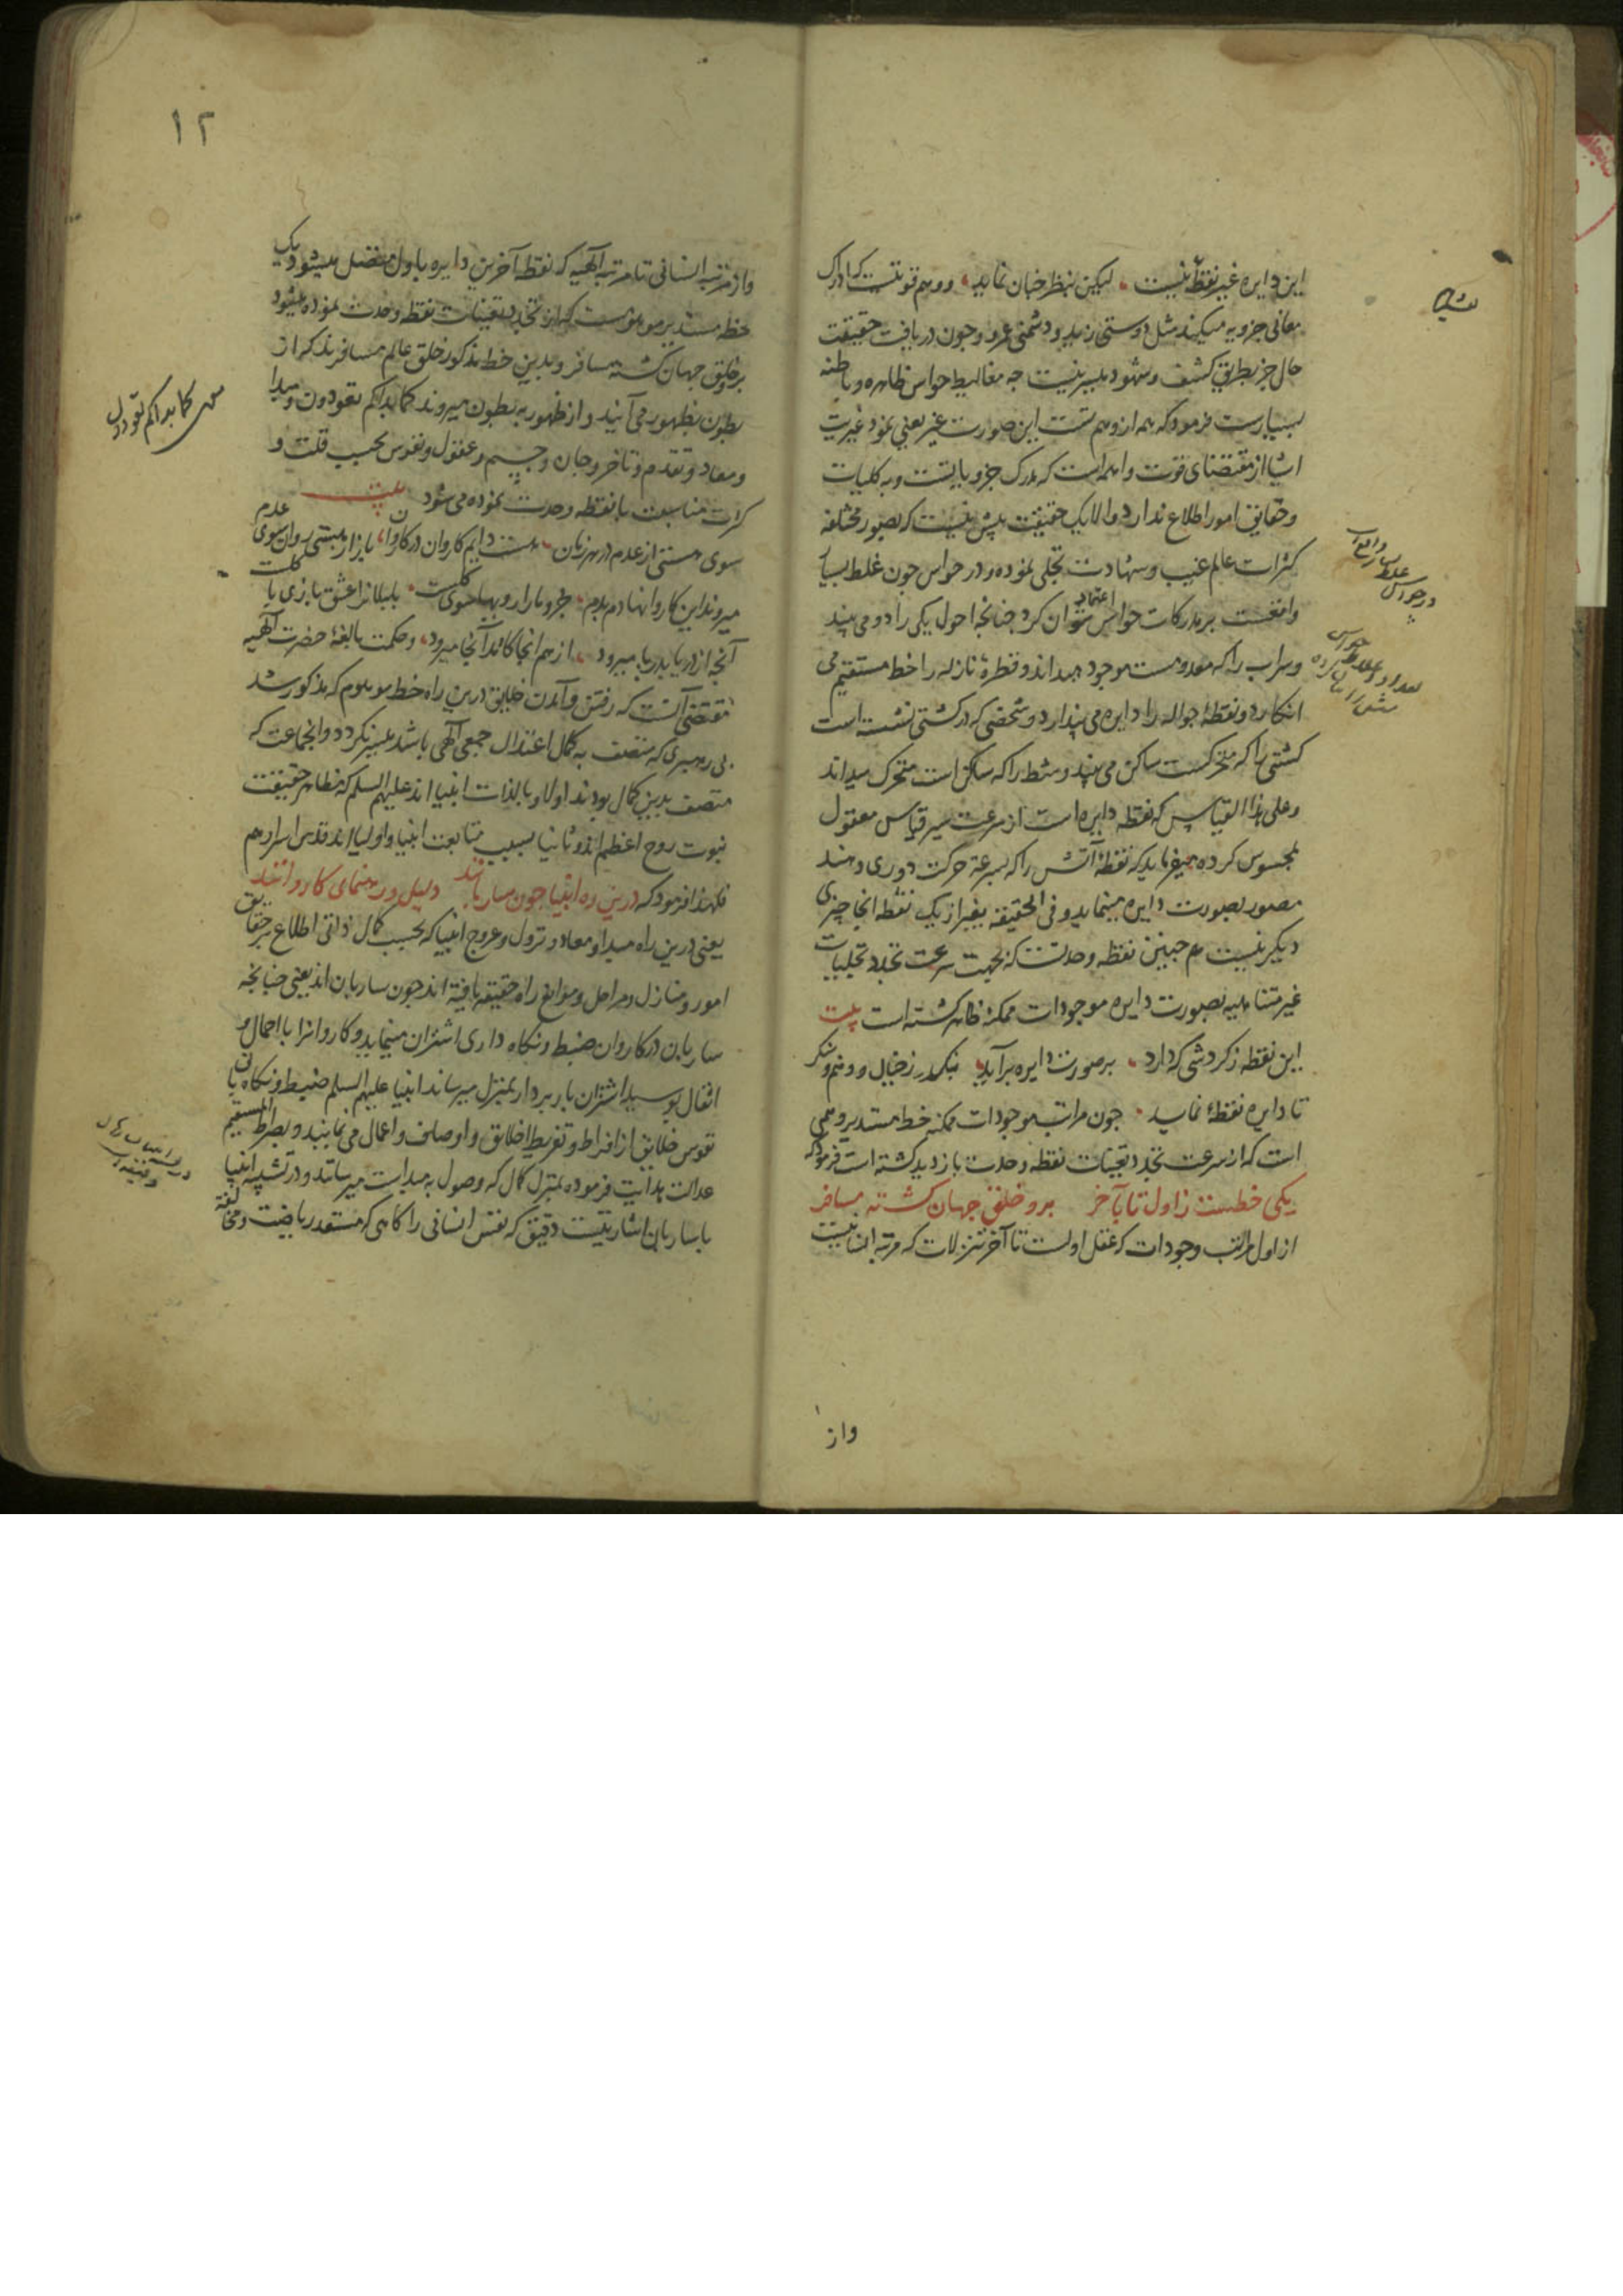 این دایره غیر نقطهٔ نیست لیکن بنظر جنان نماید و وهم قوتیست که ادراک
معانی جزویه میکند مثل دوستی زید و دشمنی عمرو و جون دریافت حقیقت
حال جز بطریق کشف و شهود میسر نیست جه مغالیط حواس ظاهره و باطنه
بسیارست فرمود که همه از وهم تست این صورت غیر یعنی نمود غیریت
اشیا از مقتضای قوت واهمه است که مدرک جزویاتست و به کلیات
و حقایق امور اطلاع ندارد و الا یک حقیقت بیش نیست که بصور مختلفه
کثرات عالم غیب و شهادت تجلی نموده و در حواس جون غلط بسیار
واقعست بر مدرکات حواس اعتماد نتوان کرد جنانجه احول یکی را دو می بیند
و سراب را که معدومست موجود میداند و قطرهٔ نازله را خط مستقیم می
انکارد و نقطهٔ جواله را دایره می پندارد و شخصی که در کشتی نشسته است
کشتی را که متحرکست ساکن می بیند و شط را که ساکن است متحرک میداند
و علی هذا القیاس که نقطه دایره است از سرعت سیر قیاس معقول
بمحسوس کرده میفرماید که نقطهٔ آتش را که بسرعة حرکت دوری دهند
مصور بصورت دایره مینماید و فی الحقیقه بغیر از یک نقطه انجا جیزی
دیکر نیست هم جنین نقطه وحدتست که بجهت سرعت تجدد تجلیات
غیر متناهیه بصورت دایره موجودات ممکنه ظاهر کشته است بیت
این نقطه ز کردشی که دارد بر صورت دایره برآید بکذر ز خیال و وهم و بنکر
تا دایره نقطهٔ نماید جون مراتب موجودات ممکنه خط مستدیر وهمی
است که از سرعت تجدد تعینات نقطه وحدت بازدید کشته است فرمود که
یکی خطست ز اول تا بآخر برو خلق جهان کشته مسافر
از اول مراتب وجودات که عقل اولست تا آخر تنزلات که مرتبه انسانیست
واز
در حواس غلط بسیار واقع است
۱۲
واز مرتبه انسانی تا مرتبه آلهیه که نقطه آخرین دایره باول متصل میشود یک
خط مستدیر موهومست که از تجدد تعینات نقطه وحدت نموده میشود
برو خلق جهان کشته مسافر و بدین خط مذکور خلق عالم مسافرند که از
بطون بظهور می آیند و از ظهور به بطون میروند کما بداکم تعودون و مبدا
و معاد و تقدم و تاخر و جان و جسم و عقول و نفوس بحسب قلت و
کثرت مناسبت با نقطه وحدت نموده می شود بیت
سوی هستی از عدم در هر زمان هست دایم کاروان در کاروان باز از هستی روان سوی عدم
میروند این کاروانها دم بدم جزوها را رویها سوی کلست بلبلانرا عشق بازی با کلست
آنجه از دریا بدریا میرود از همانجا کامد آنجا میرود و حکمت بالغهٔ حضرت آلهیه
مقتضی آنست که رفتن و آمدن خلایق درین راه خط موهوم که مذکور شد
بی رهبری که متصف به کمال اعتدال جمعی آلهی باشد میسر نکردد و انجماعت که
متصف بدین کمال بودند اولا و بالذات انبیا اند علیهم السلم که مظاهر حقیقت
نبوت روح اعظم اند و ثانیا بسبب متابعت انبیا اولیا اند قدس اسرارهم
فلهذا فرمود که درین ره انبیا جون ساربانند دلیل و رهنمای کاروانند
یعنی درین راه مبدا و معاد و نزول و عروج انبیا که بحسب کمال ذاتی اطلاع بر حقایق
امور و منازل و مراحل و موانع راه حقیقه یافته اند جون ساربان اند یعنی جنانجه
ساربان در کاروان ضبط و نکاه داری اشتران مینماید و کاروانرا با احمال و
اثقال بوسیلهٔ اشتران باربردار بمنزل میرساند انبیا علیهم السلم ضبط و نکاه بانی
نفوس خلایق از افراط و تفریط اخلاق و اوصاف و اعمال می نمایند و بصراط المستقیم
عدالت هدایت فرموده بمنزل کمال که وصول به مبدا است میرسانند و در تشبیه انبیا
با ساربان اشارتیست دقیق که نفس انسانی را کاهی که مستعد ریاضت و مخالفة
کما بداکم تعودون